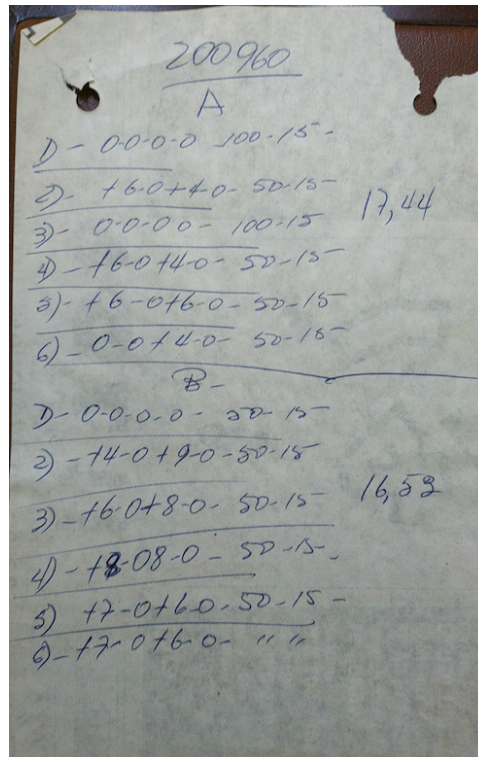 200960
A
1) - 0-0-0-0 100-15-
2) - +6-0+4-0- 50-15-
17,44
3) - 0-0-0-0- 100-15
4) - +6-0+4-0- 50-15-
5) - +6-0+6-0- 50-15-
6) - 0-0+4-0- 50-15-
B-
1) - 0-0-0-0- 50-15-
2) - +4-0+9-0-50-15-
3) - +6-0+8-0- 50-15-
16,52
4) - +8-08-0- 50-15-
5) +7-0+6-0-50-15-
6) - +7-0+6-0- " "